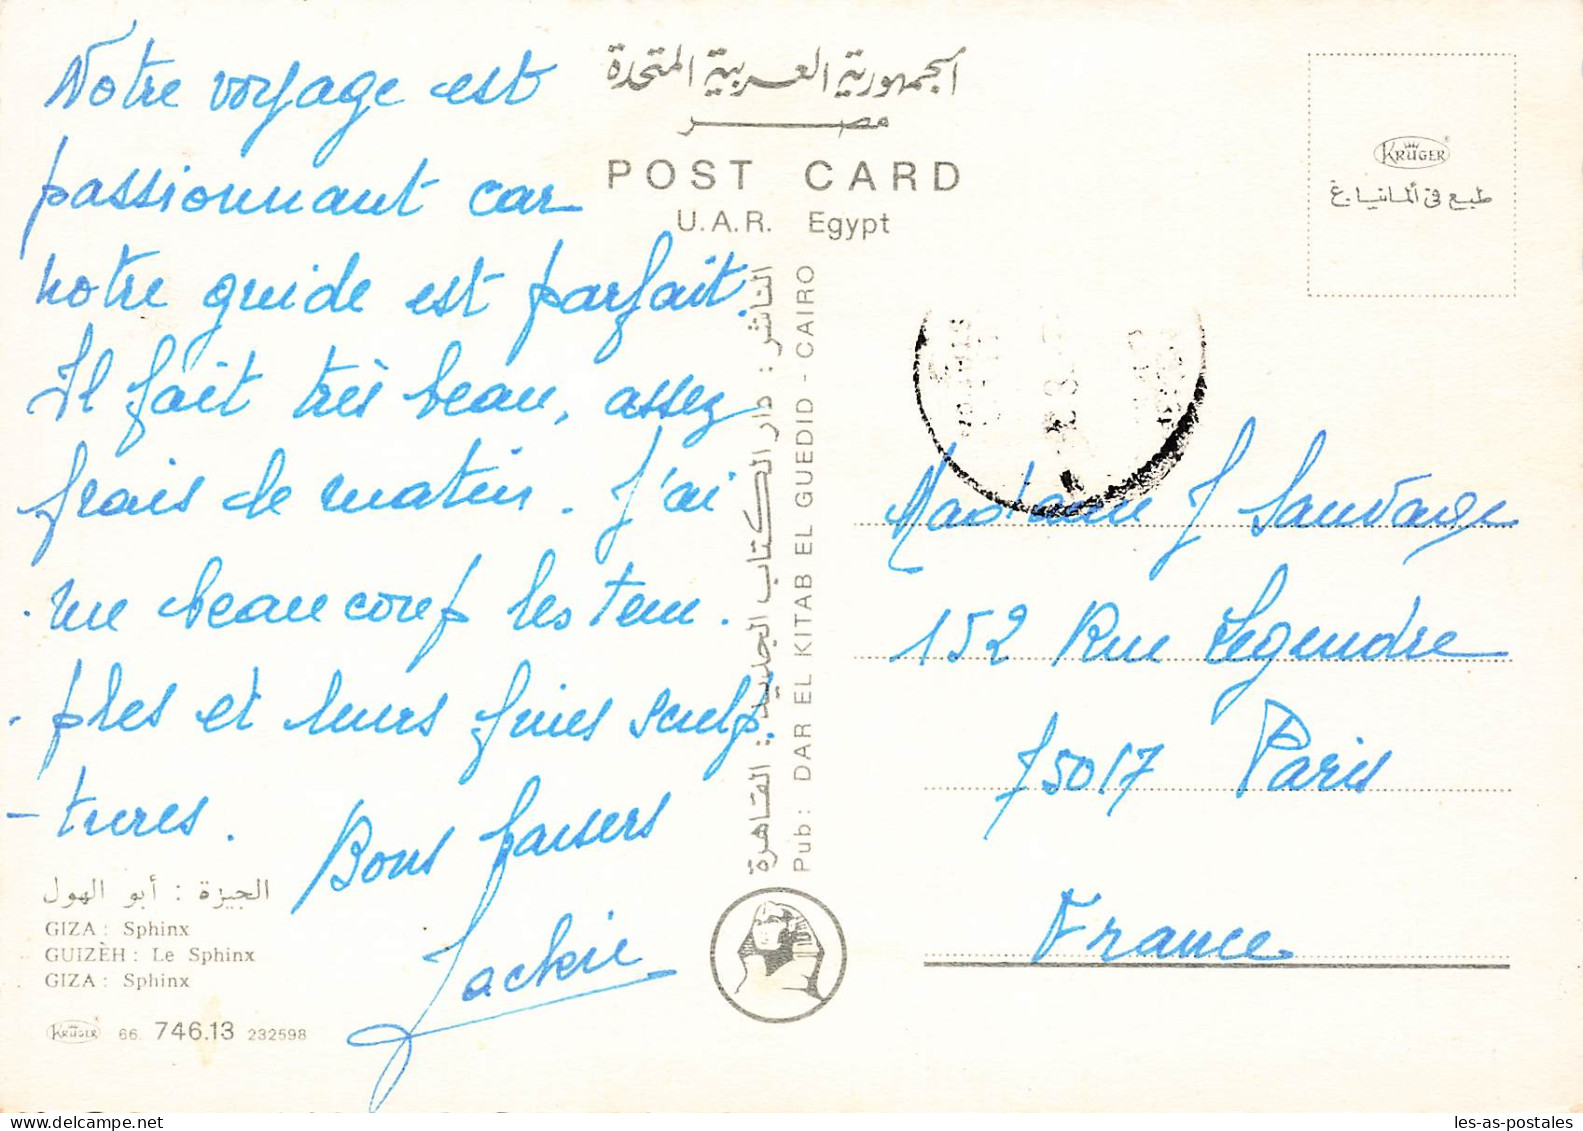 Notre voyage est
passionnant car
notre guide est parfait.
Il fait très beau, assez
frais le matin. J'ai
vu beaucoup les tem.
ples et leurs fines sculp.
- tures.
Bons baisers
Jackie
الجيزة : أبو الهول
GIZA : Sphinx
GUIZÈH : Le Sphinx
GIZA : Sphinx
KRÜGER 66. 746.13 232598
الجمهورية العربية المتحدة
مصر
POST CARD
U.A.R. Egypt
الناشر : دار الكتاب الجديد : القاهرة
Pub : DAR EL KITAB EL GUEDID - CAIRO
KRÜGER
طبع في ألمانيا . غ
Madame J Sauvage
152 Rue Legendre
75017 Paris
France
les-as-postales